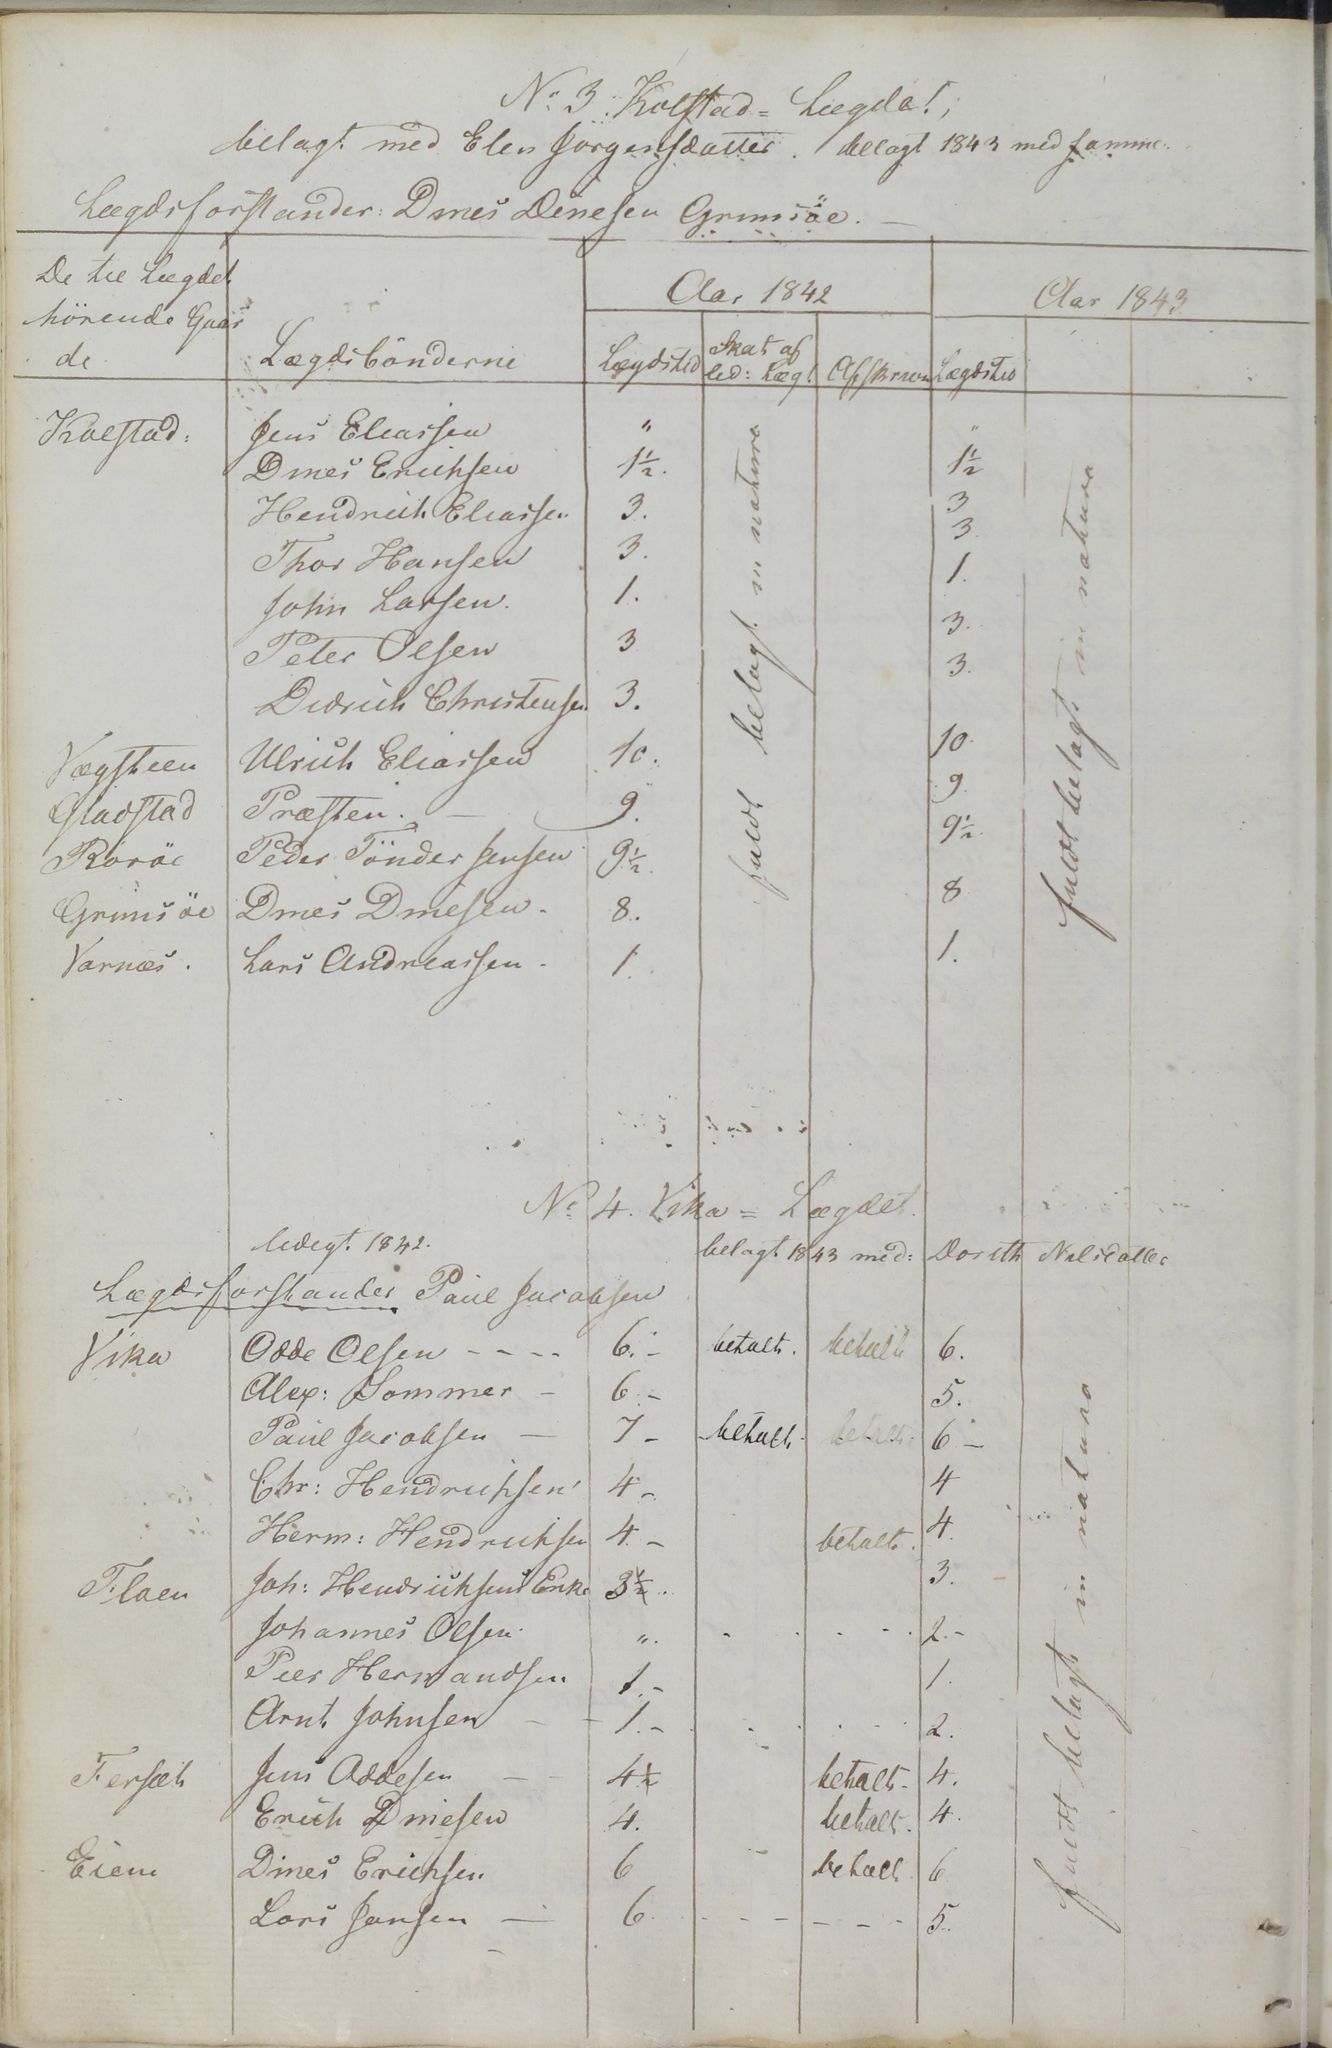 No: 3. Kolstad = Lægdet;
belagt med Elen Jörgensdatter. belagt 1843 med samme.
Lægdsforstander: Dines Dinesen Grimsöe. —
De til Lægdet hörende Gaarde | Lægdsbönderne | Aar 1842 | Aar 1843
Lægdstid | Skat af led: Lægd | Afskreven | Lægdstid
Kolstad: Jens Eliassen " "
Dines Erichsen 1½. 1½
Hendrich Eliassen 3. 3
Thor Hansen 3. 3.
John Larsen. 1. 1.
Peter Olsen 3 3.
Didrich Christensen 3. 3.
Vægsteen Ulrich Eliassen 10. 10.
Gladstad Præsten. — 9. 9.
Roröe Peder Tönder Jensen 9½. 9½.
Grimsöe Dines Dinesen. 8. 8
Varnæs. Lars Andreassen. 1. 1.
fuldt belagt in natura
fuldt belagt in natura
No 4. Vika = Lægdet.
ledigt. 1842. belagt. 1843 med: Dorith Nilsdatter
Lægdsforstander Paul Jacobsen
Vika Odde Olsen - - - - 6. - betalt. betalt 6.
Alex: Sommer - 6. - 5.
Paul Jacobsen — 7 - betalt. betalt. 6 -
Chr: Hendrichsen 4 - 4
Herm: Hendrichsen 4. - betalt. 4.
Floen Joh: Hendrichsens Enke 3½. 3.
Johannes Olsen ". 2. -
Peer Hermandsen 1. - 1.
Arnt Johnsen - 1. - 2.
Fersæt Jens Addesen — 4½ betalt. 4.
Erich Dinesen 4. betalt. 4.
Eiem Dines Erichsen 6 betalt 6
Lars Jansen — 6. 5.
fuldt belagt in natura